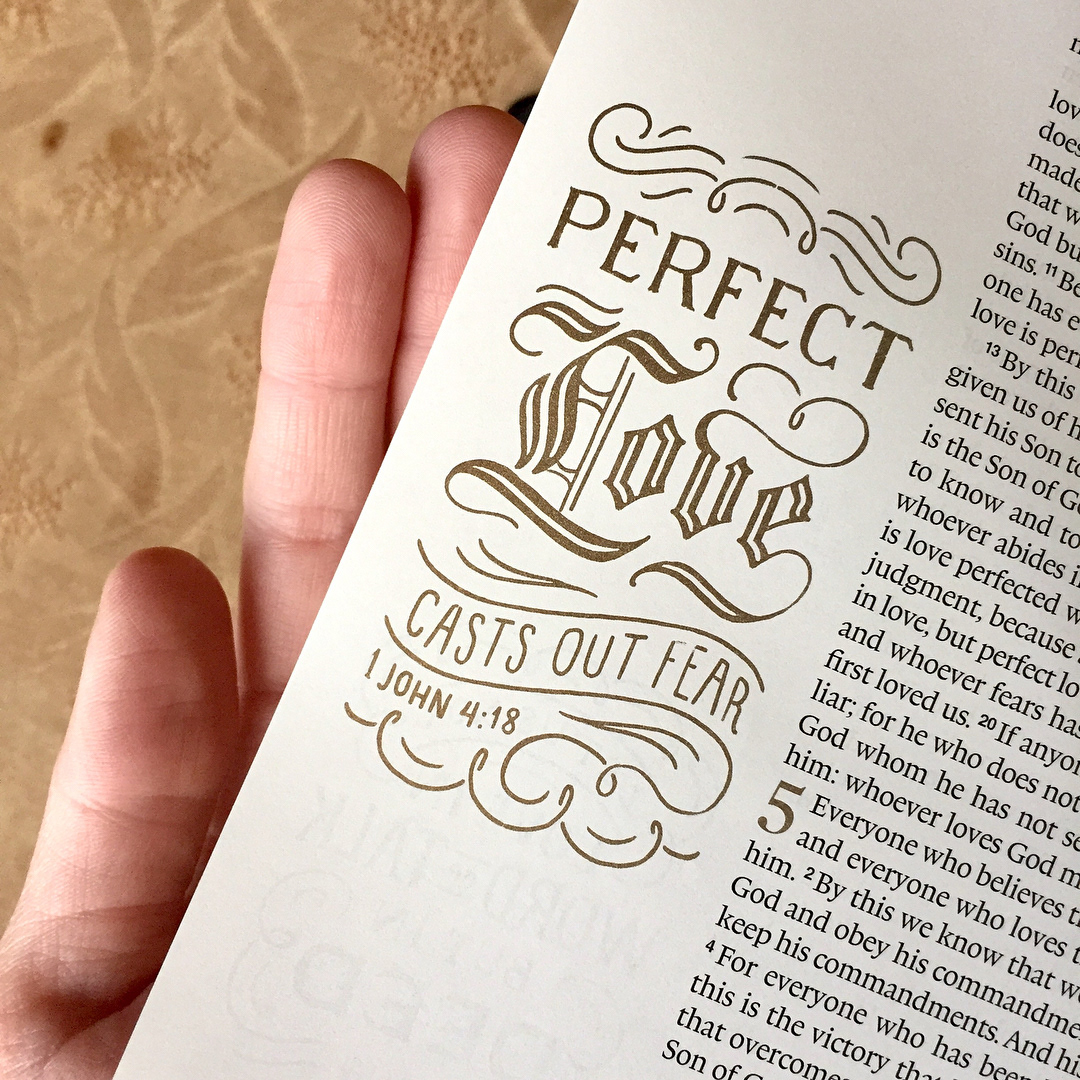 PERFECT
Love
CASTS OUT FEAR
1 JOHN 4:18
lov
does
made
that w
God bu
sins. 11 Be
one has e
love is per
13 By this
given us of h
sent his Son to
is the Son of Go
to know and to
whoever abides i
is love perfected w
judgment, because
in love, but perfect lo
and whoever fears has
first loved us. 20 If anyo
liar; for he who does not
God whom he has not se
him: whoever loves God m
5 Everyone who believes t
and everyone who loves t
him. 2 By this we know that we
God and obey his commandme
keep his commandments. And hi
4 For everyone who has been
this is the victory tha
that overcome
Son of G